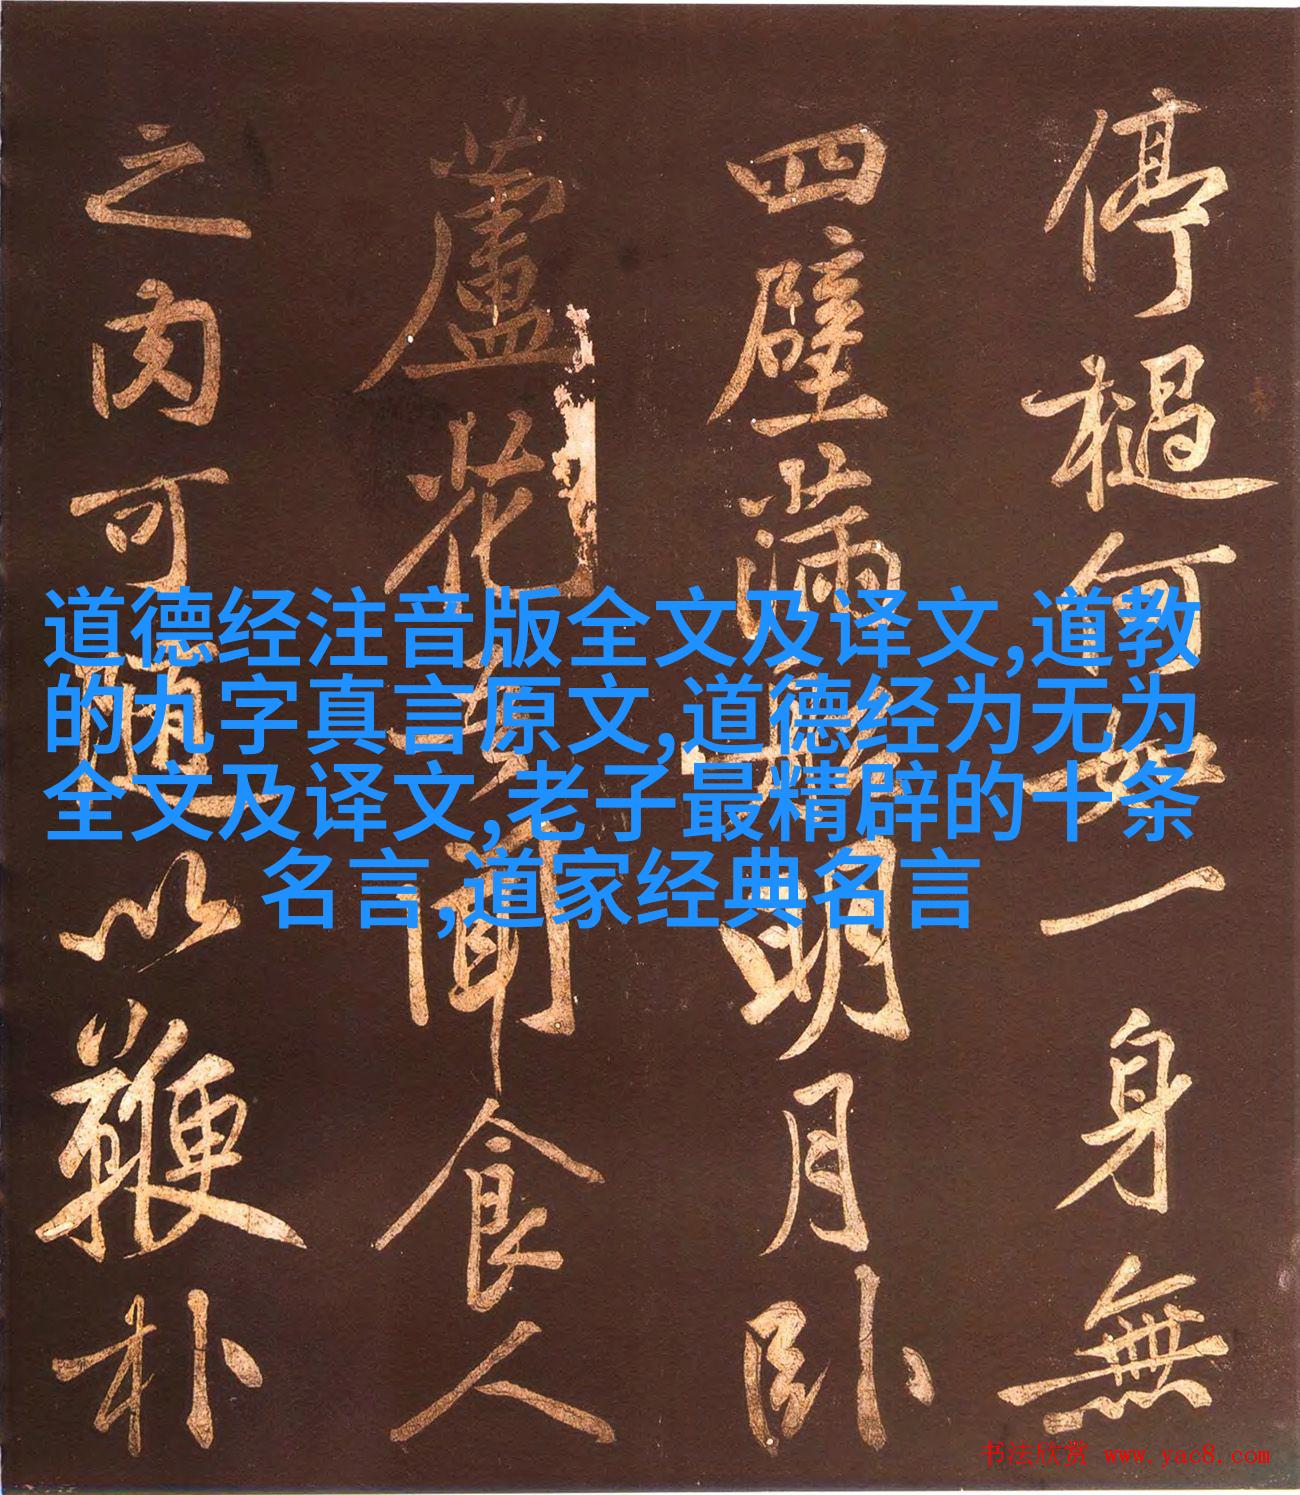 停檛何如一身無
四壁滿船明月卧
蘆花吾聞食人
之肉可隨以鞭朴
道德经注音版全文及译文,道教
的九字真言原文,道德经为无为
全文及译文,老子最精辟的十条
名言,道家经典名言
书法欣赏 www.yac8.com